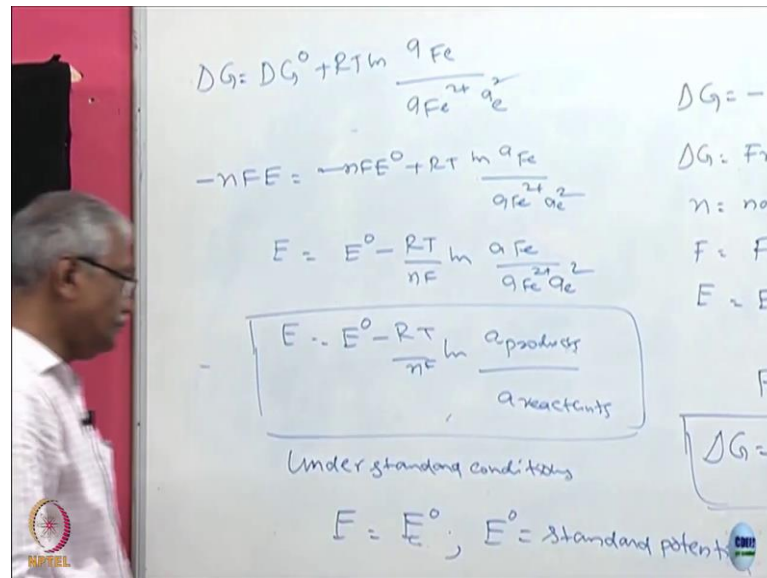 DG = DG⁰ + RT ln aFe / aFe²⁺ ae²
-nFE = -nFE⁰ + RT ln aFe / aFe²⁺ ae²
E = E⁰ - RT/nF ln aFe / aFe²⁺ ae²
E = E⁰ - RT/nF ln aproducts / areactants
Under standard conditions
E = E⁰ ; E⁰ = standard potent
DG = -
DG = Fr
n = no
F = F
E = E
F
DG =
NPTEL